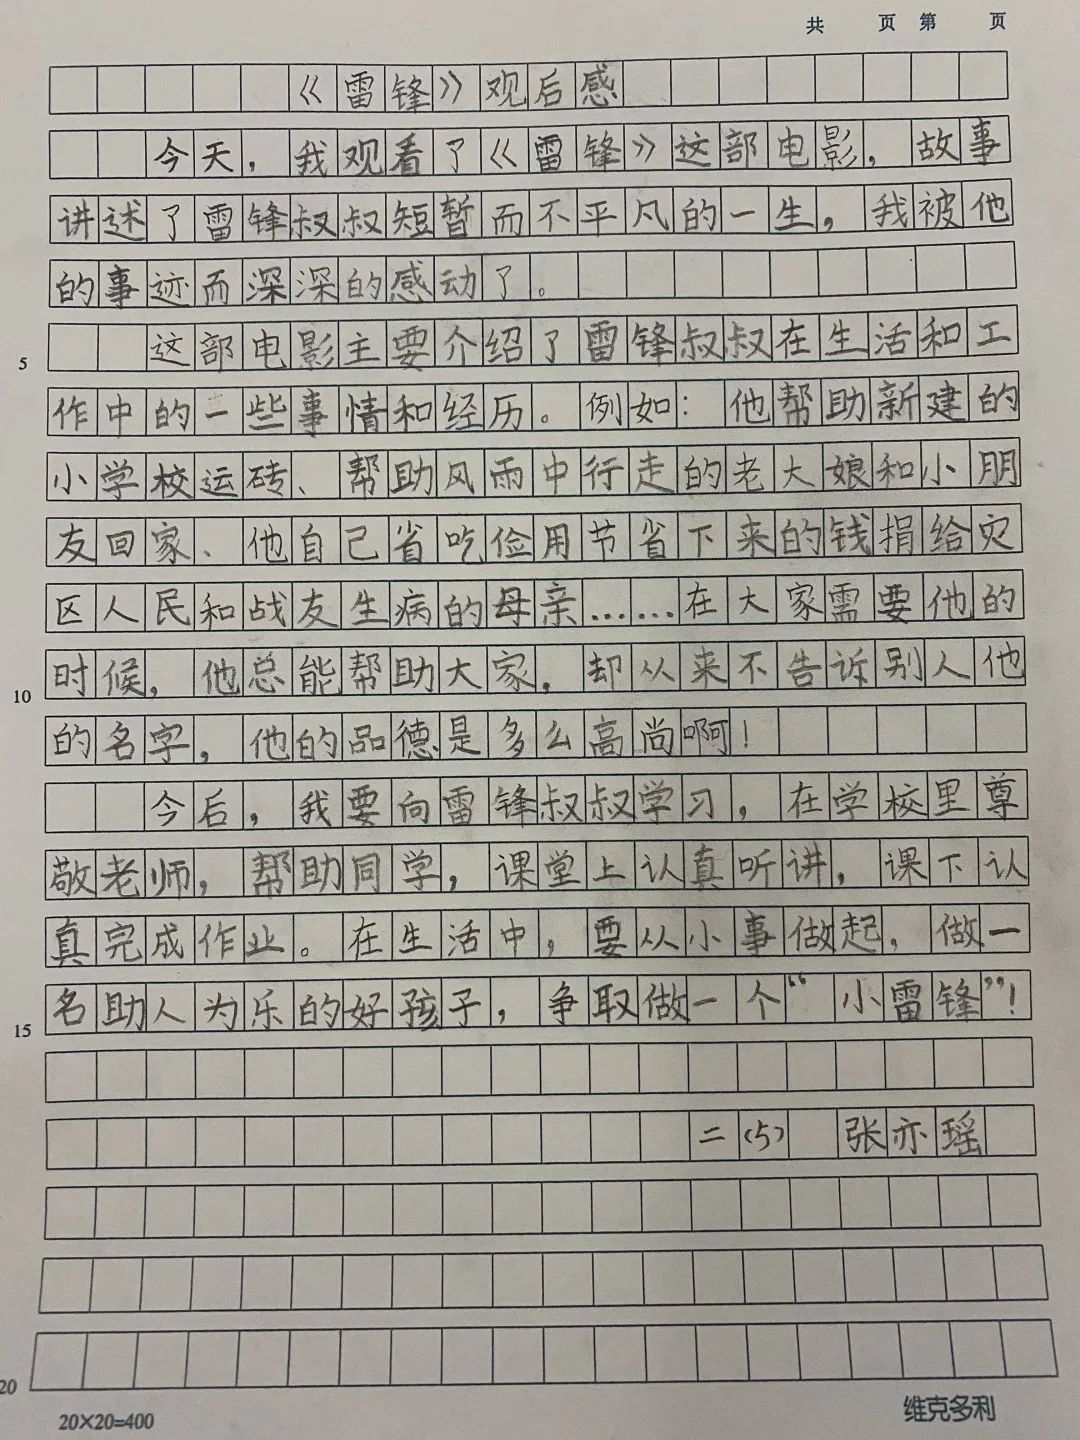 共 页 第 页
《雷锋》观后感
今天，我观看了《雷锋》这部电影，故事
讲述了雷锋叔叔短暂而不平凡的一生，我被他
的事迹而深深的感动了。
5 这部电影主要介绍了雷锋叔叔在生活和工
作中的一些事情和经历。例如：他帮助新建的
小学校运砖、帮助风雨中行走的老大娘和小朋
友回家、他自己省吃俭用节省下来的钱捐给灾
区人民和战友生病的母亲……在大家需要他的
10 时候，他总能帮助大家，却从来不告诉别人他
的名字，他的品德是多么高尚啊！
今后，我要向雷锋叔叔学习，在学校里尊
敬老师，帮助同学，课堂上认真听讲，课下认
真完成作业。在生活中，要从小事做起，做一
15 名助人为乐的好孩子，争取做一个“小雷锋”！
二(5) 张亦瑶
20
20×20=400 维克多利